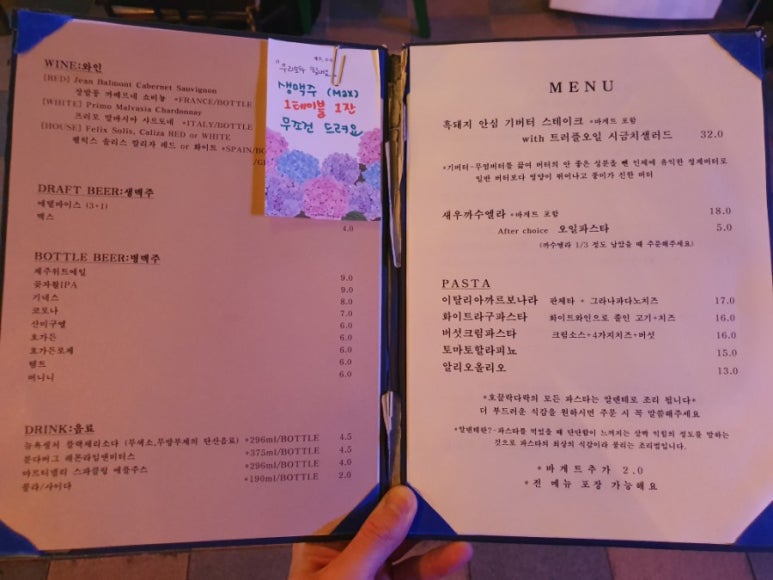 WINE:와인
[RED] Jean Balmont Cabernet Sauvignon
장발몽 까베르네 쇼비뇽 *FRANCE/BOTTLE
[WHITE] Primo Malvasia Chardonnay
프리모 말바시아 샤르도네 *ITALY/BOTTLE
[HOUSE] Felix Solis, Caliza RED or WHITE
펠릭스 솔리스 칼리자 레드 or 화이트 *SPAIN/BO
생맥주 (MAX)
1테이블 1잔
무조건 드려요
DRAFT BEER:생맥주
에델바이스 (3+1)
맥스
4.0
BOTTLE BEER:병맥주
제주위트에일 9.0
꽃자왈IPA 9.0
기네스 8.0
코로나 7.0
산미구엘 6.0
호가든 6.0
호가든로제 6.0
템트 6.0
버니니 6.0
DRINK:음료
뉴욕셀처 블랙체리소다 (무색소,무방부제의 탄산음료) *296ml/BOTTLE 4.5
분다버그 레몬라임앤비터스 *375ml/BOTTLE 4.5
마르티넬리 스파클링 애플주스 *296ml/BOTTLE 4.0
콜라/사이다 *190ml/BOTTLE 2.0
MENU
흑돼지 안심 기버터 스테이크 *바게트 포함
with 트러플오일 시금치샐러드 32.0
*기버터-무염버터를 끓여 버터의 안 좋은 성분을 뺀 인체에 유익한 정제버터로
일반 버터보다 영양이 뛰어나고 풍미가 진한 버터
새우까수엘라 *바게트 포함 18.0
After choice 오일파스타 5.0
(까수엘라 1/3 정도 남았을 때 주문해주세요)
PASTA
이탈리아까르보나라 판체타 + 그라나파다노치즈 17.0
화이트라구파스타 화이트와인으로 졸인 고기+치즈 16.0
버섯크림파스타 크림소스+4가지치즈+버섯 16.0
토마토할라피뇨 15.0
알리오올리오 13.0
*호끌락다락의 모든 파스타는 알덴테로 조리 됩니다*
더 부드러운 식감을 원하시면 주문 시 꼭 말씀해주세요
*알덴테란?-파스타를 먹었을 때 단단함이 느껴지는 살짝 익힘의 정도를 말하는
것으로 파스타의 최상의 식감이라 불리는 조리법입니다.
*바게트추가 2.0
*전 메뉴 포장 가능해요